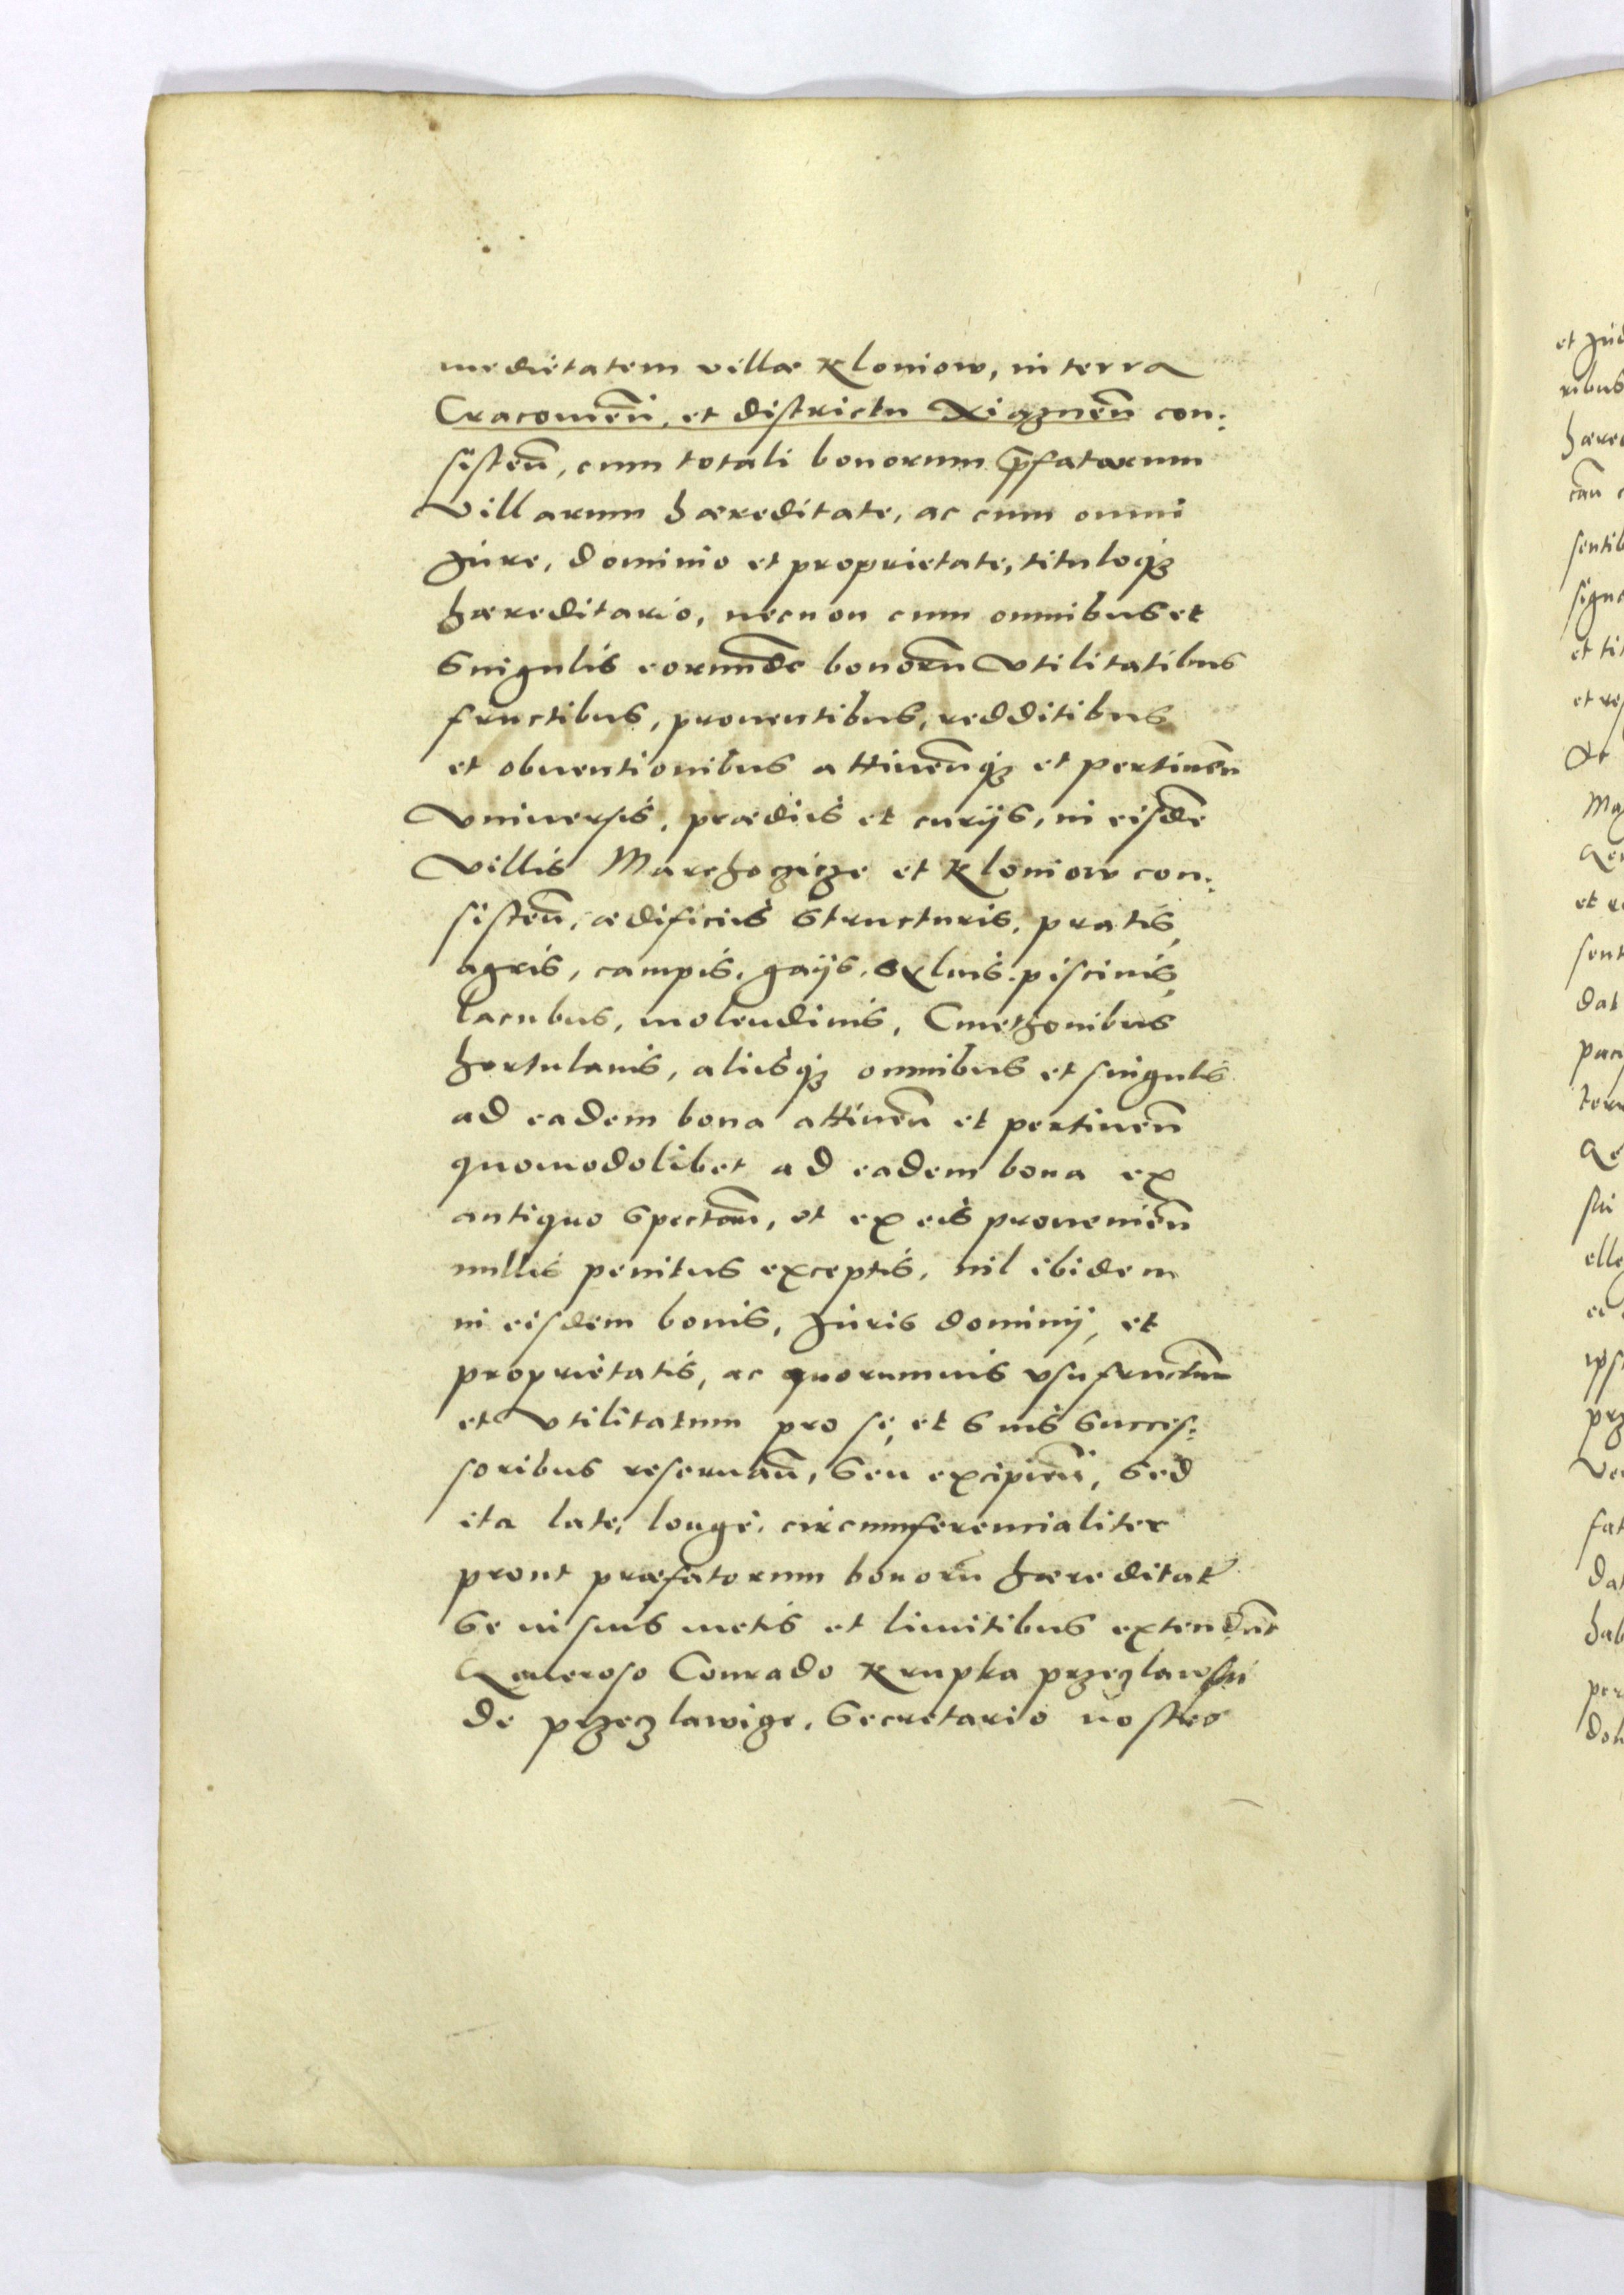 medietatem villæ Kloniow, in terra
Cracouien̄, et districtu Xiąznen̄ con:
sisten̄, cum totali bonorum p̄fatarum
Villarum hæreditate, ac cum omni
Jure, dominio et proprietate, tituloqȝ
hæreditario, necnon cum omnibus et
singulis eorundē bonorū vtilitatibus
fructibus, prouentibus, redditibus
et obuentionibus attinen̄qȝ et pertinen̄
vniuersis, prædiis et curijs, in eisdē
Villis Marchoczicze et Kloniow con:
sisten̄, ædificiis structuris, pratis,
agris, campis, gaijs, syluis, piscinis,
lacubus, molendinis, Cmethonibus
hortulanis, aliisqȝ omnibus et singulis
ad eadem bona attinen̄ et pertinen̄
quomodolibet ad eadem bona ex
antiquo spectan̄, et ex eis prouenien̄
nullis penitus exceptis, nil ibidem
in eisdem bonis, Juris dominij, et
proprietatis, ac quorumuis vsufructuū
et vtilitatum pro se, et suis succes:
soribus reseruan̄, seu excipien̄, sed
ita late, longe, circumferencialiter
prout præfatorum bonorū hæreditat̄
se in suis metis et limitibus extendūt
Generoso Conrado Krupka przeczlawski
de przeczlawicze, Secretario nostro
et
ribus
sentib
et tit
dat